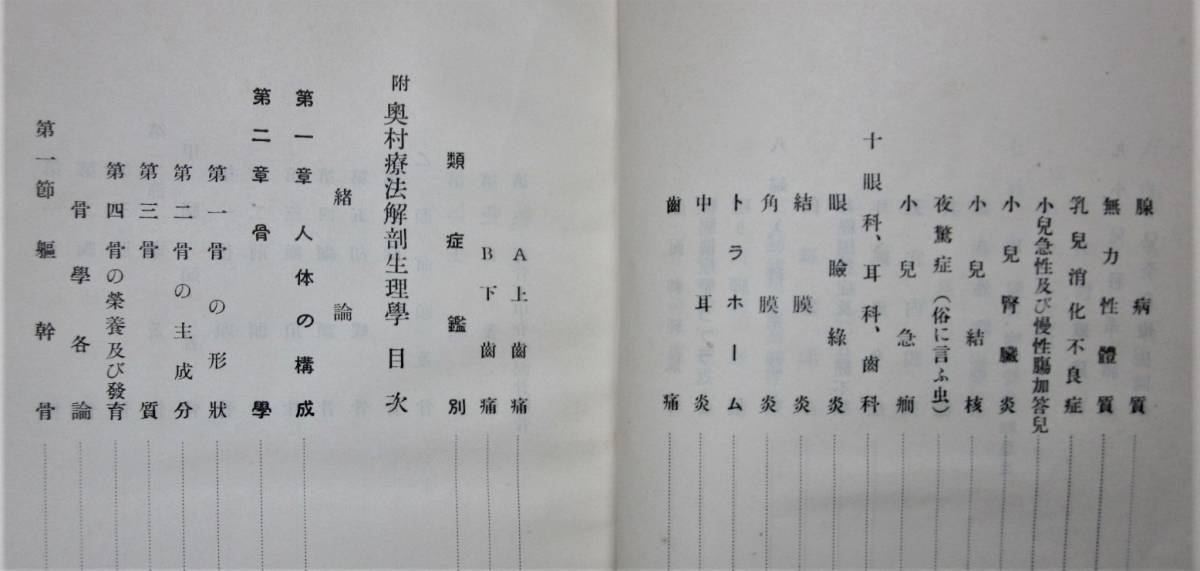 腺病質
無力性體質
乳兒消化不良症
小兒急性及び慢性膓加答兒
小兒腎臓炎
小兒結核
夜驚症(俗に言ふ虫)
小兒急癎
十 眼科、耳科、齒科
眼瞼緣炎
結膜炎
角膜炎
トラホーム
中耳炎
齒痛
A上齒痛
B下齒痛
類症鑑別
附 奥村療法解剖生理學 目次
緒論
第一章 人体の構成
第二章 骨學
第一 骨の形狀
第二 骨の主成分
第三 骨質
第四 骨の榮養及び發育
骨學各論
第一節 軀幹骨